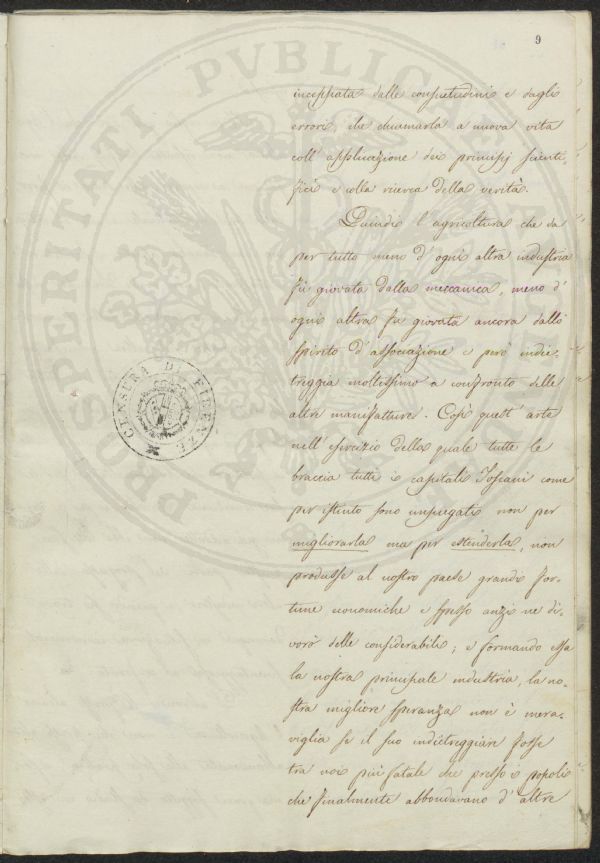 9
inceppata dalle consuetudini e dagli
errori, che chiamarla a nuova vita
coll' applicazione dei principj scienti-
fici e colla ricerca della verità.
Quindi l' agricoltura che da
per tutto meno d' ogni altra industria
fù giovata dalla meccanica, meno d'
ogni altra fù giovata ancora dallo
spirito d' associazione e però indie-
treggia moltissimo a confronto delle
altre manifatture. Così quest' arte
nell' esercizio della quale tutte le
braccia tutti i capitali Toscani come
per istinto sono impiegati non per
migliorarla ma per estenderla, non
produsse al nostro paese grandi for-
tune economiche e spesso anzi ne di-
vorò delle considerabili; e formando essa
la nostra principale industria, la no-
stra migliore speranza non è mera-
viglia se il suo indietreggiare fosse
tra noi più fatale che presso i popoli
che finalmente abbondavano d' altre
CENSURA DI FIRENZE
PROSPERITATI PVBLICAE